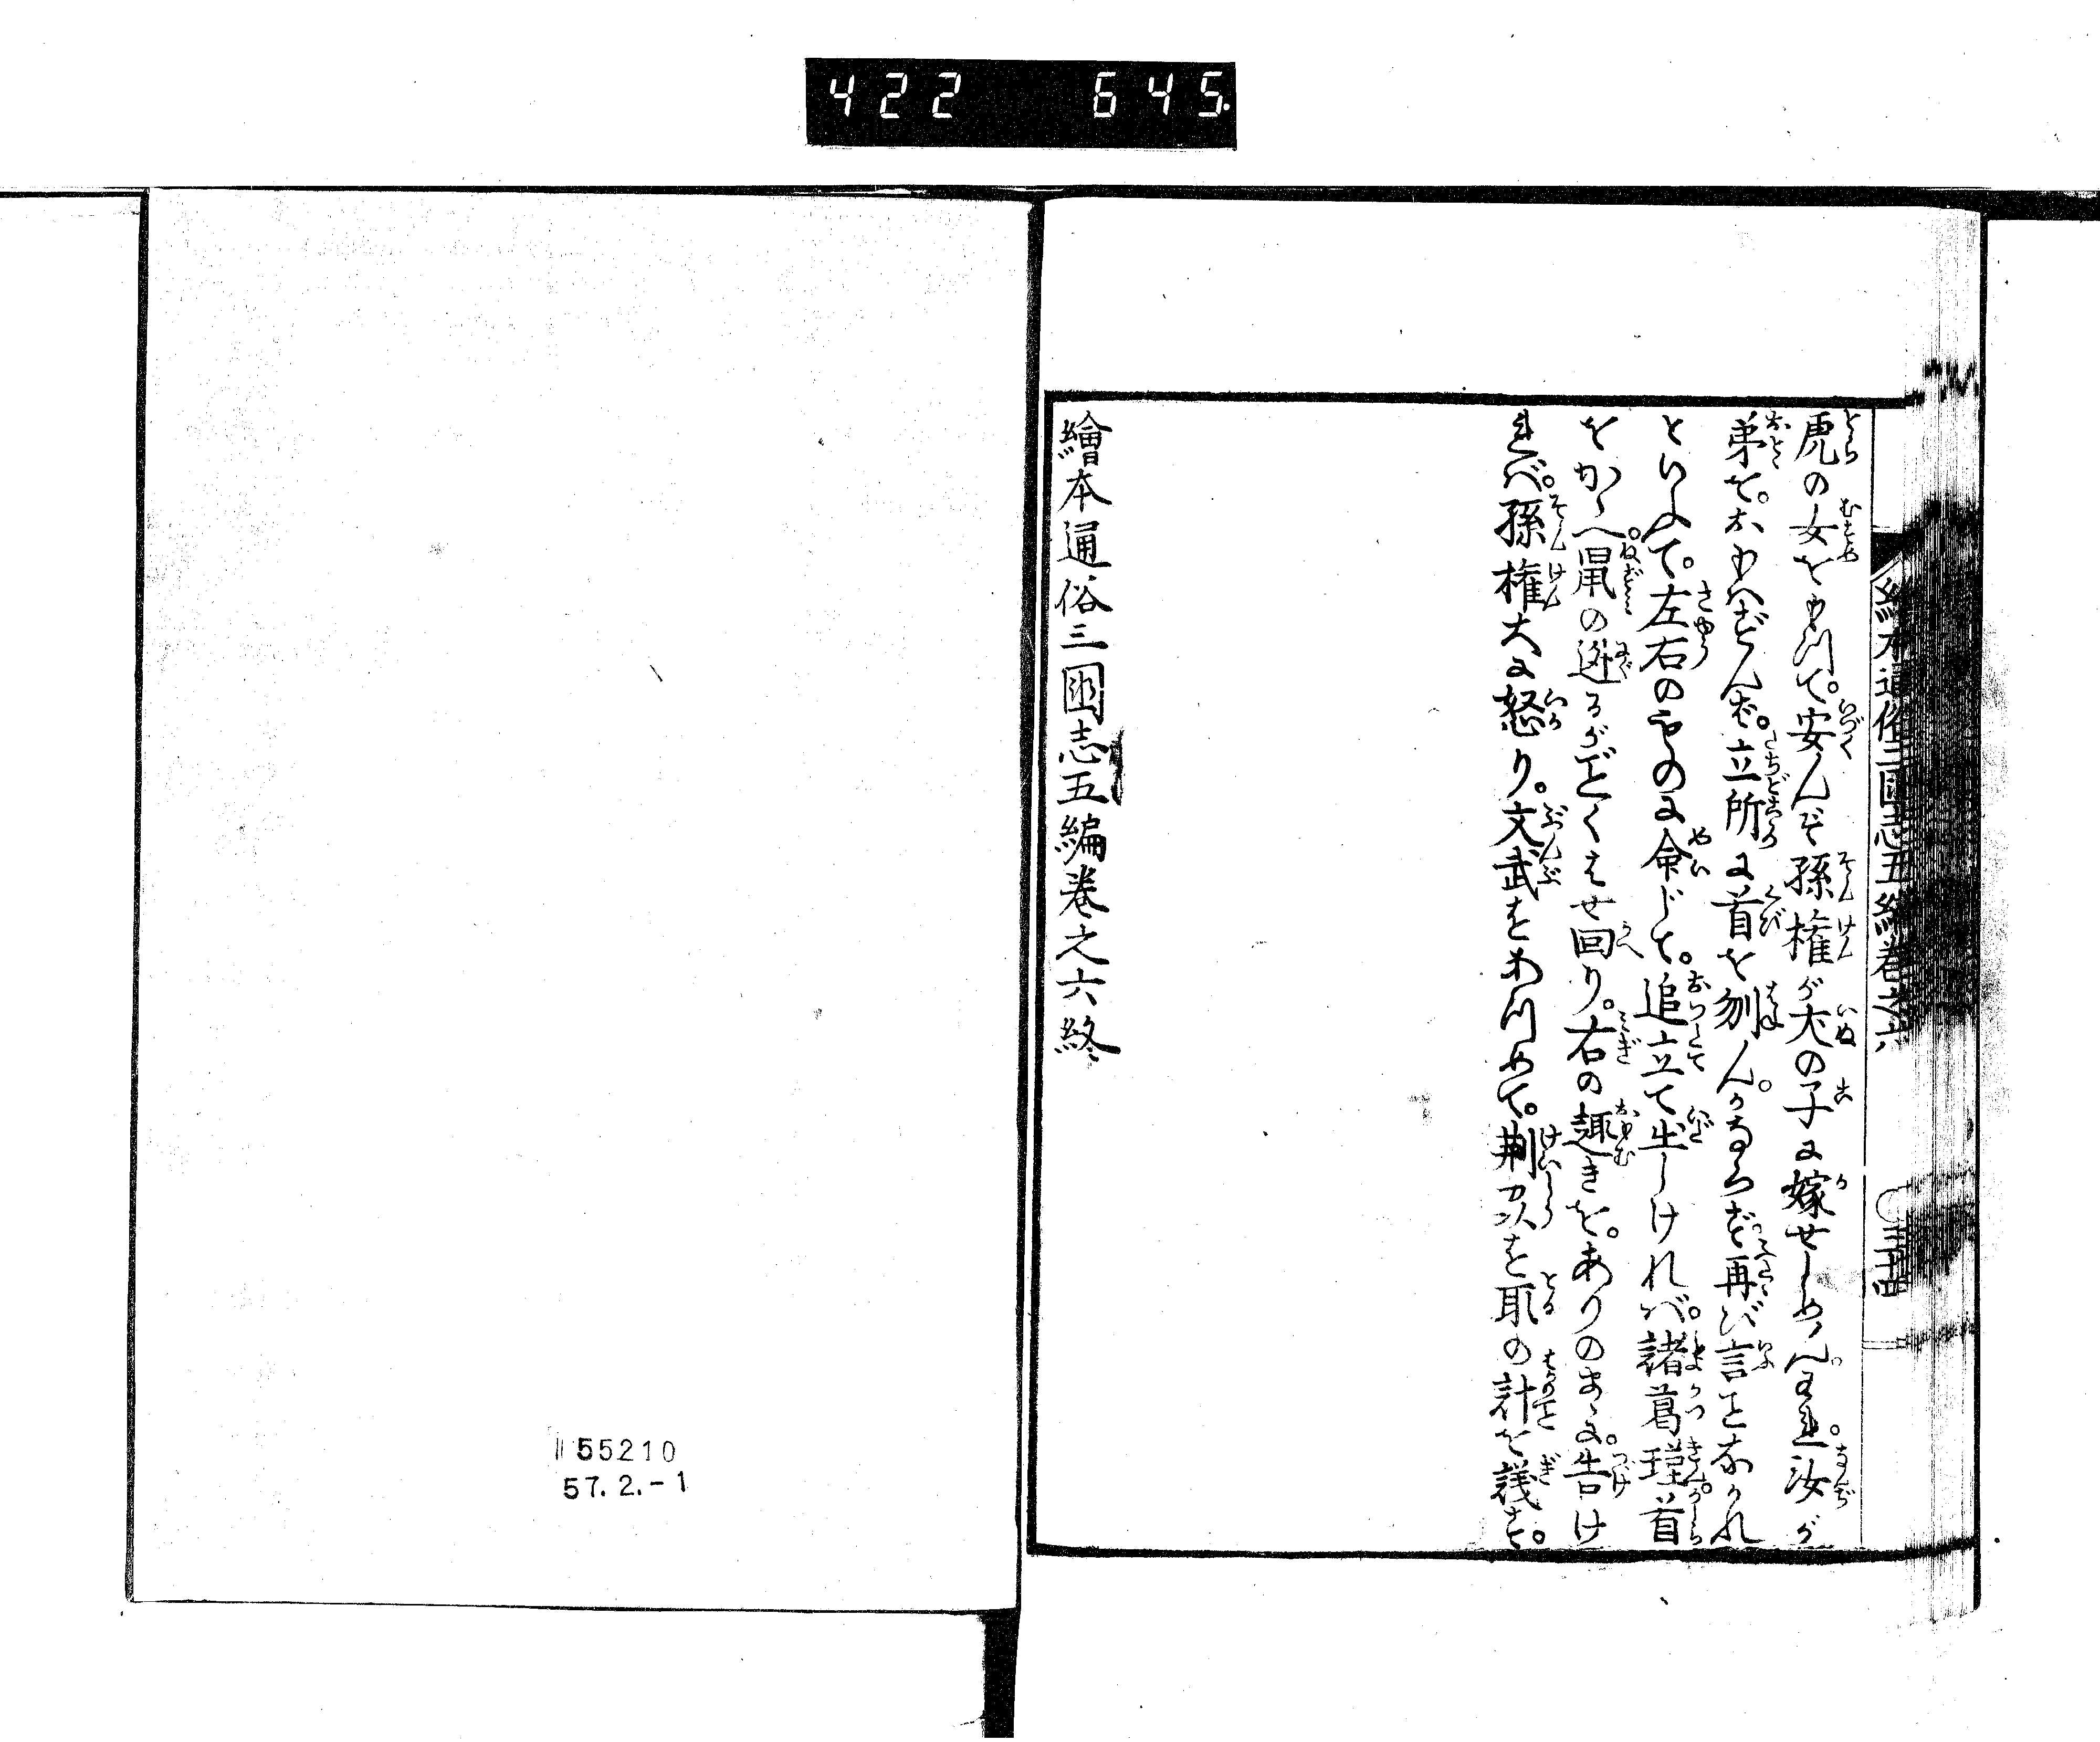 422 645
繪本通俗三國志五編卷之六 ○三十四
虎の女をもつて。安んぞ孫權が犬の子に嫁せしめん。われ汝が
弟を。おもはずんば。立所に首を刎ん。かならず再び言ことなかれ
といふて。左右のものに命じて。追立て出しければ。諸葛瑾首
をかゝへ。鼠の迯るがごとくはせ回り。右の趣きを。ありのまゝに。告け
れば。孫權大に怒り。文武をあつめて。荆刕を取の計を議す。
繪本通俗三國志五編卷之六終
55210
57.2.-1